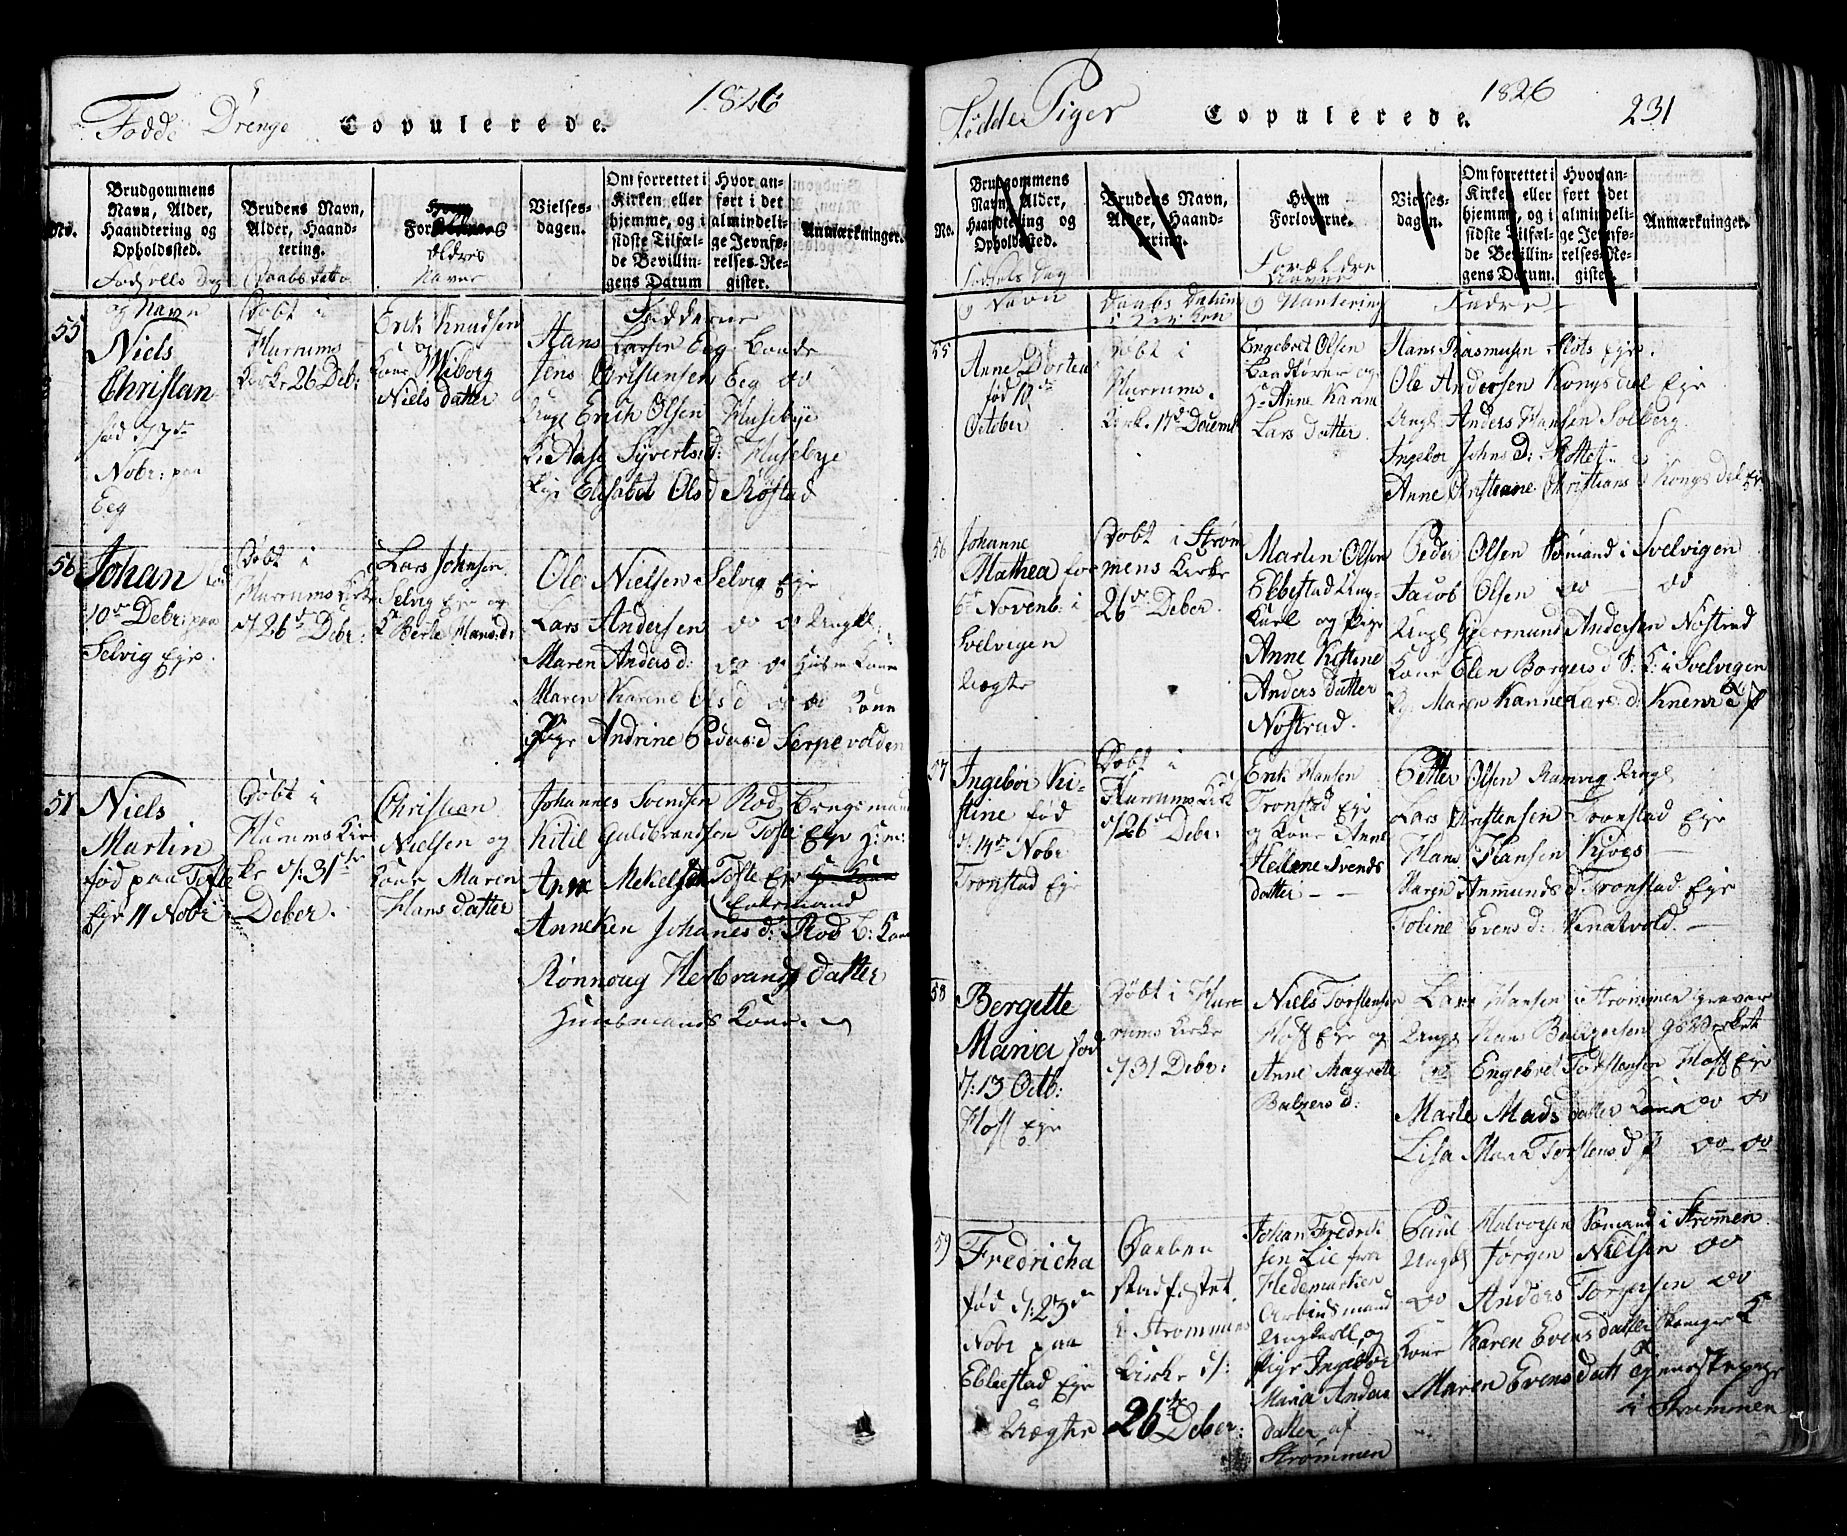 Fødde Drenge Copulerede. 1826
No.
Brudgommens
Navn, Alder,
Haandtering og
Opholdssted.
Brudens Navn,
Alder, Haand-
tering.
Ældres
Navne
Vielses-
dagen.
Om forrettet i
Kirken eller
hjemme, og i
sidste Tilfæl-
de Bevillin-
gens Datum
Hvor an-
ført i det
almindeli-
ge Jevnfø-
relses-Re-
gister.
Anmærkninger.
og Navn
55
Niels
Christian
fød 17de
Nobr: paa
Eeg
Døbt i
Hurrums
Kirke 26 Debr:
Erik Knudsen
og
Kone Wiborg
Niels datter
Fadderne
Hans Larsen Eeg Bonde
Jens Christensen Eeg do
Ungk Erich Olsen Husebye
K: Aase Syverts d: Husebye
Pige Elisabet Ols d Røstad
56
Johan fød
10de Debr: paa
Selvig Eje.
Døbt i
Hurrums Kirke
d/26d Debr:
Lars Johnsen
Selvig Eje og
K: Berte Hans d:
Ole Nielsen Selvig Eje
Lars Andersen do do Ungk:
Maren Anders d: do do Huusm Kone
Maren Karene Ols d do do Kone
Pige Andrine Peders d Serpevolden
57
Niels
Martin
fød paa Tofte
Eje 11 Nobr
Døbt i
Hurums Kir
ke d/: 31te
Deber.
Christian
Nielsen og
Kone Maren
Hans datter
Johannes Svendsen Rød Brugsmand
Kitil Guldbrandsen Tofte Eje H: m:
Arne Mekelsen Tofte Eje
Enkemand
Anneken Johanes d: Rød B: Kone
Rønnoug Herbrands datter
Huusmands Kone.

Fødde Piger Copulerede. 1826 231
No.
Brudgommens
Navn, Alder,
Haandtering og
Opholdssted.
Fødsels Dag
og Navn
Brudens Navn,
Alder, Haand-
tering.
Daabs Datum
i Kirken
Hvem
Forloverne.
Forældre
Navne
og Hantering
Vielses-
dagen.
Fadre
Om forrettet i
Kirken eller
hjemme, og i
sidste Tilfæl-
de Bevillin-
gens Datum.
Hvor an-
ført i det
almindeli-
ge Jevnfø-
relses-Re-
gister.
Anmærkninger.
55
Anne Dortea
fød 10de
October
Døbt i
Hurrums
Kirk. 17d Decemb
Engebret Olsen
Landkører og
H: Anne Karine
Lars datter
Hans Rasmusen Slots Eje.
Ole Andersen Kongsdel Eje
Ungk: Anders Hansen Solberg
Ingebor Johns d: Slottet
Anne Christiane Christians d Kongsdel Eje
56
Johanne
Mathea fød
6te Novemb: i
Svelvigen
Uægte
Døbt i Strøm
mens Kirke
26de Deber.
Martin Olsen
Ebbestad Ung-
karl og Pige
Anne Kistine
Anders datter
Nøstrud.
Peder Olsen Sømand i Svelvigen
Jacob Olsen do — do
Ungk Gjermund Andersen Nøstrud
Kone Elen Borgers d S: K: i Svelvigen
P. Maren Kanne Lars d: Knem Eje P
57
Ingebor Ki-
stine fød
d/: 14de Nobr
Tronstad Eje
Døbt i
Hurrums Kirk
d/26de Debr:
Erik Hansen
Tronstad Eje
og Kone Anne
Hellene Svends
datter —
Petter Olsen Ramvig Ungk
Lars Christensen Tronstad Eje
Hans Hansen Kjøes —
Karen Anmunds d Tronstad Eje
Toline Evens d: Knatvold. —
58
Bergitte
Maria fød
d/: 13 Octb:
Høff Eje
Døbt i Hur-
rums Kirke
d/31 Debr:
Niels Torstensen
Høff Eje og
Anne Magrete
Balzers d:
Lars Hansen i Strømmen
Ungk Hans Balzersen
do Engebret Torstensen Høff Eje
Marte Mads datter Kone do do
Lisa Maria Torstens d P do do
59
Fredricha
fød d/: 23de
Nobr paa
Ebbestad Eje
Uægte
Daaben
stadfæstet
i Strømmens
Kirke d/:
26de Deber:
Johan Fredrik
sen Lie fra
Hedemarken
Arbeidsmand
Ungkarl, og
Pige Ingebor
Maria Anders
datter af
Strømmen
Paul Halvorsen Sømand i Strømmen
Ungk Jørgen Nielsen do
do Anders Torgersen do
Kone Karen Evens datter
Maren Evens datt
i Strømmen